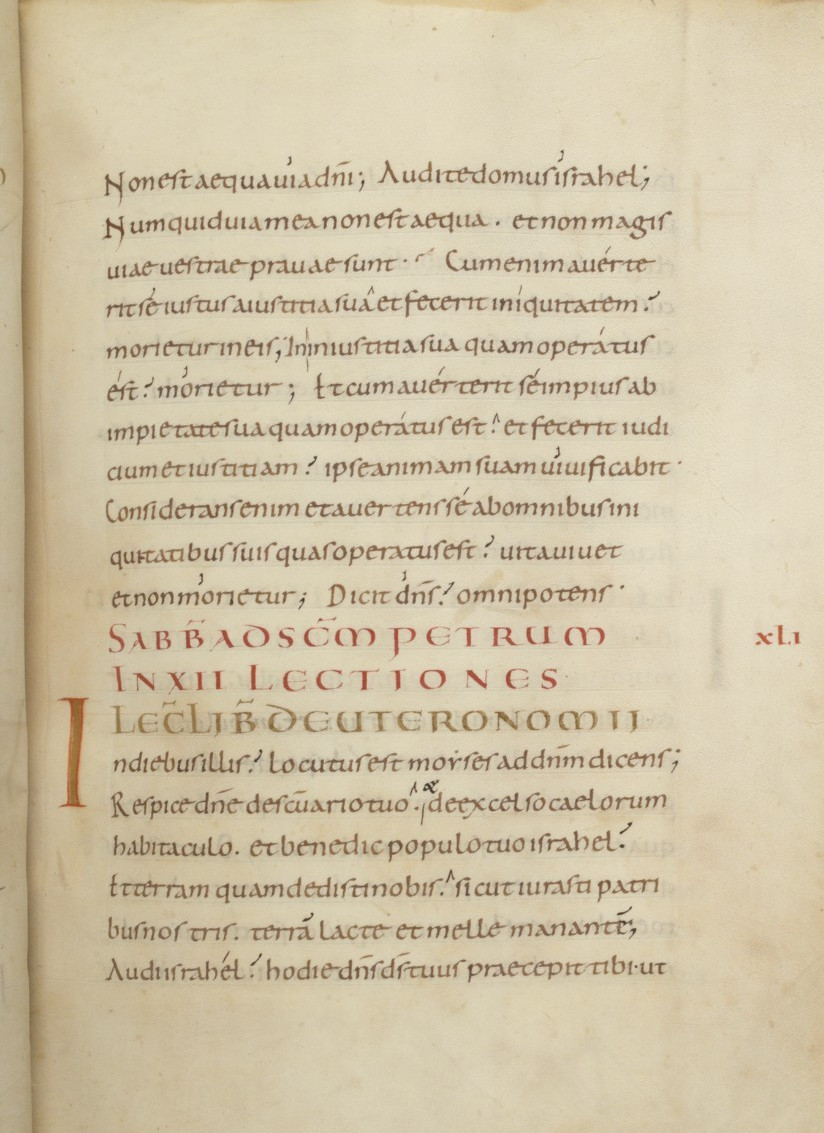 Non est aequa uia dnī; Audite domus israhel;
Numquid uia mea non est aequa . et non magis
uiae uestrae prauae sunt . Cum enim auerte
rit se iustus a iustitia sua et fecerit iniquitatem .
morietur in eis; In iniustitia sua quam operatus
est . morietur ; Et cum auerterit se impius ab
impietate sua quam operatus est . et fecerit iudi
cium et iustitiam . ipse animam suam uiuificabit .
Considerans enim et auertens se ab omnibus ini
quitatibus suis quas operatus est . uita uiuet
et non morietur ; Dicit dn̄s . omnipotens .
SABB̄ AD SC̄M PETRUM xLi
IN XII LECTIONES
LEC̄ LIB̄ DEUTERONOMII
In diebus illis . Locutus est moyses ad dn̄m dicens ;
Respice dn̄e de sc̄uario tuo . & de excelso caelorum
habitaculo . et benedic populo tuo israhel .
Et terram quam dedisti nobis . sicut iurasti patri
bus nostris . terrā lacte et melle manantē ;
Audi israhel . hodie dn̄s ds̄ tuus praecepit tibi . ut